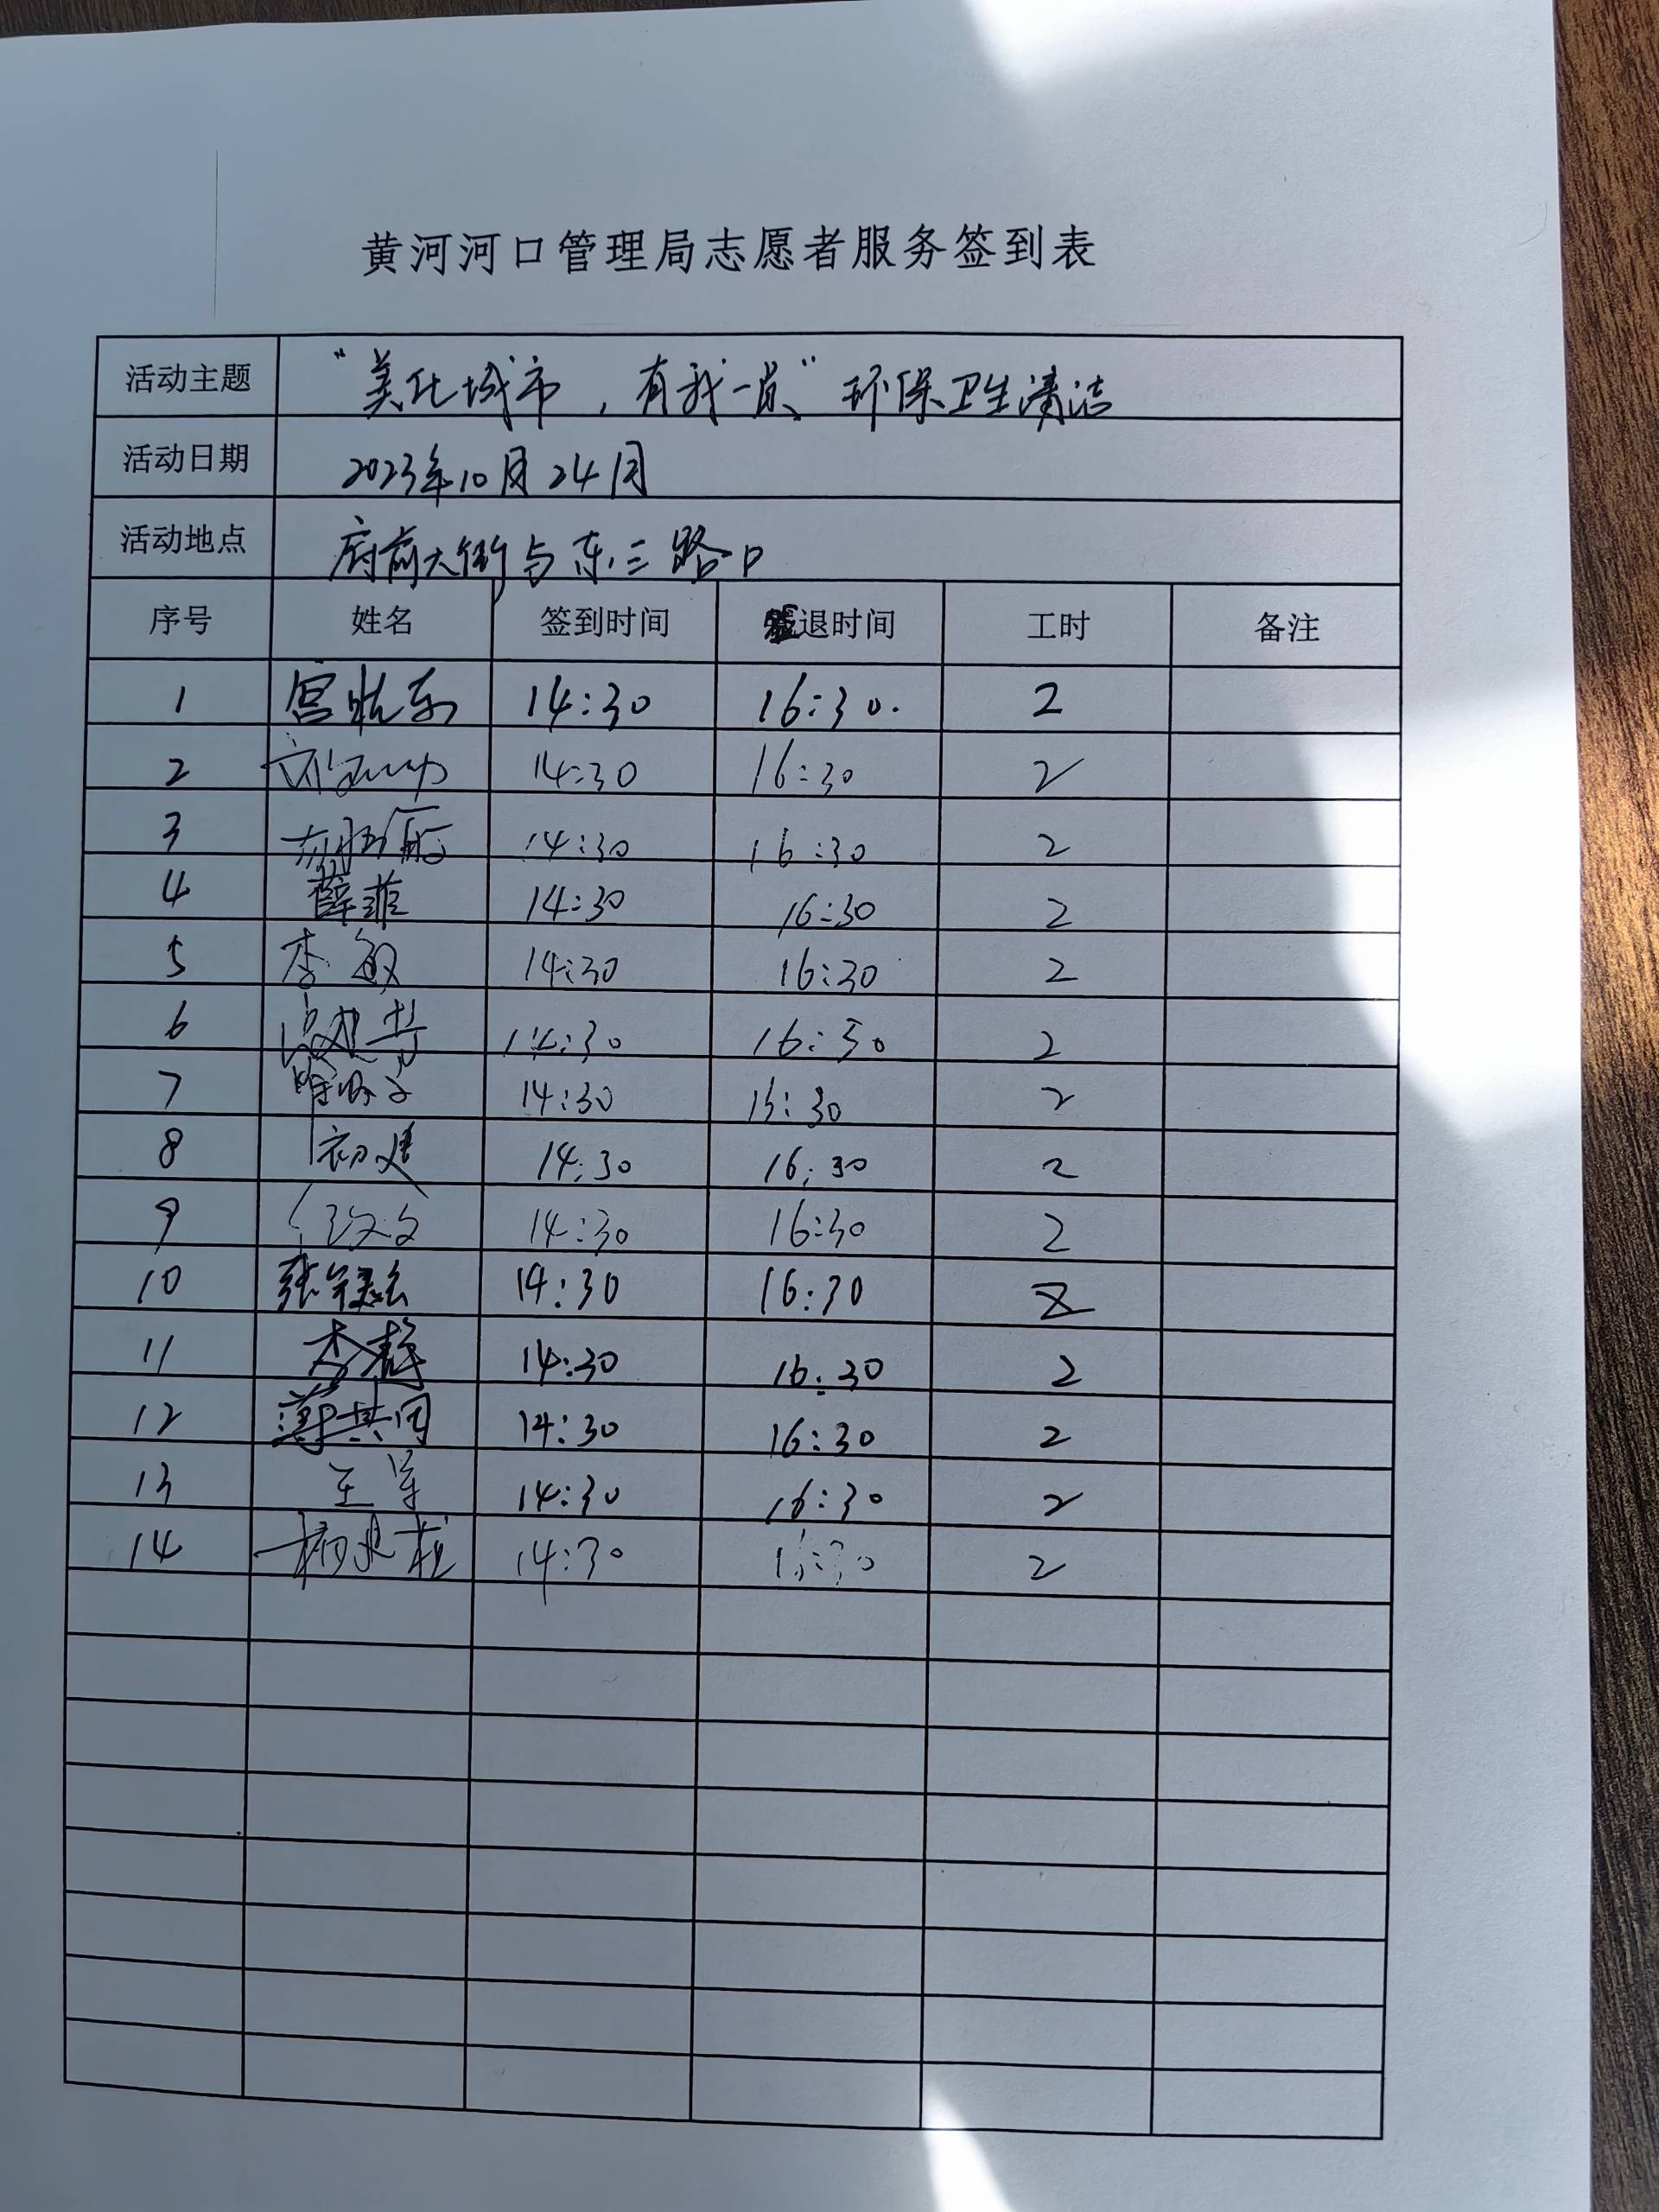 黄河河口管理局志愿者服务签到表
活动主题 "美化城市，有我一员"环保卫生清洁
活动日期 2023年10月24日
活动地点 府前大街与东三路口
序号 姓名 签到时间 签退时间 工时 备注
1 14:30 16:30. 2
2 14:30 16:30 2
3 14:30 16:30 2
4 薛菲 14:30 16:30 2
5 李敏 14:30 16:30 2
6 14:30 16:30 2
7 14:30 2
8 初建 14:30 16:30 2
9 14:30 16:30 2
10 14:30 16:30 2
11 李静 14:30 16:30 2
12 14:30 16:30 2
13 王军 14:30 16:30 2
14 14:30 2